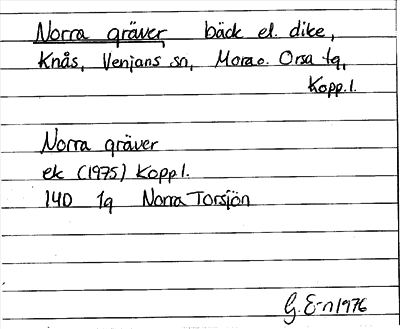 Norra gräver bäck el. dike,
Knås, Venjans sn, Mora o. Orsa tg,
Kopp. l.
Norra gräver
ek (1975) Kopp l.
140 1q Norra Torsjön
G. E-n 1976